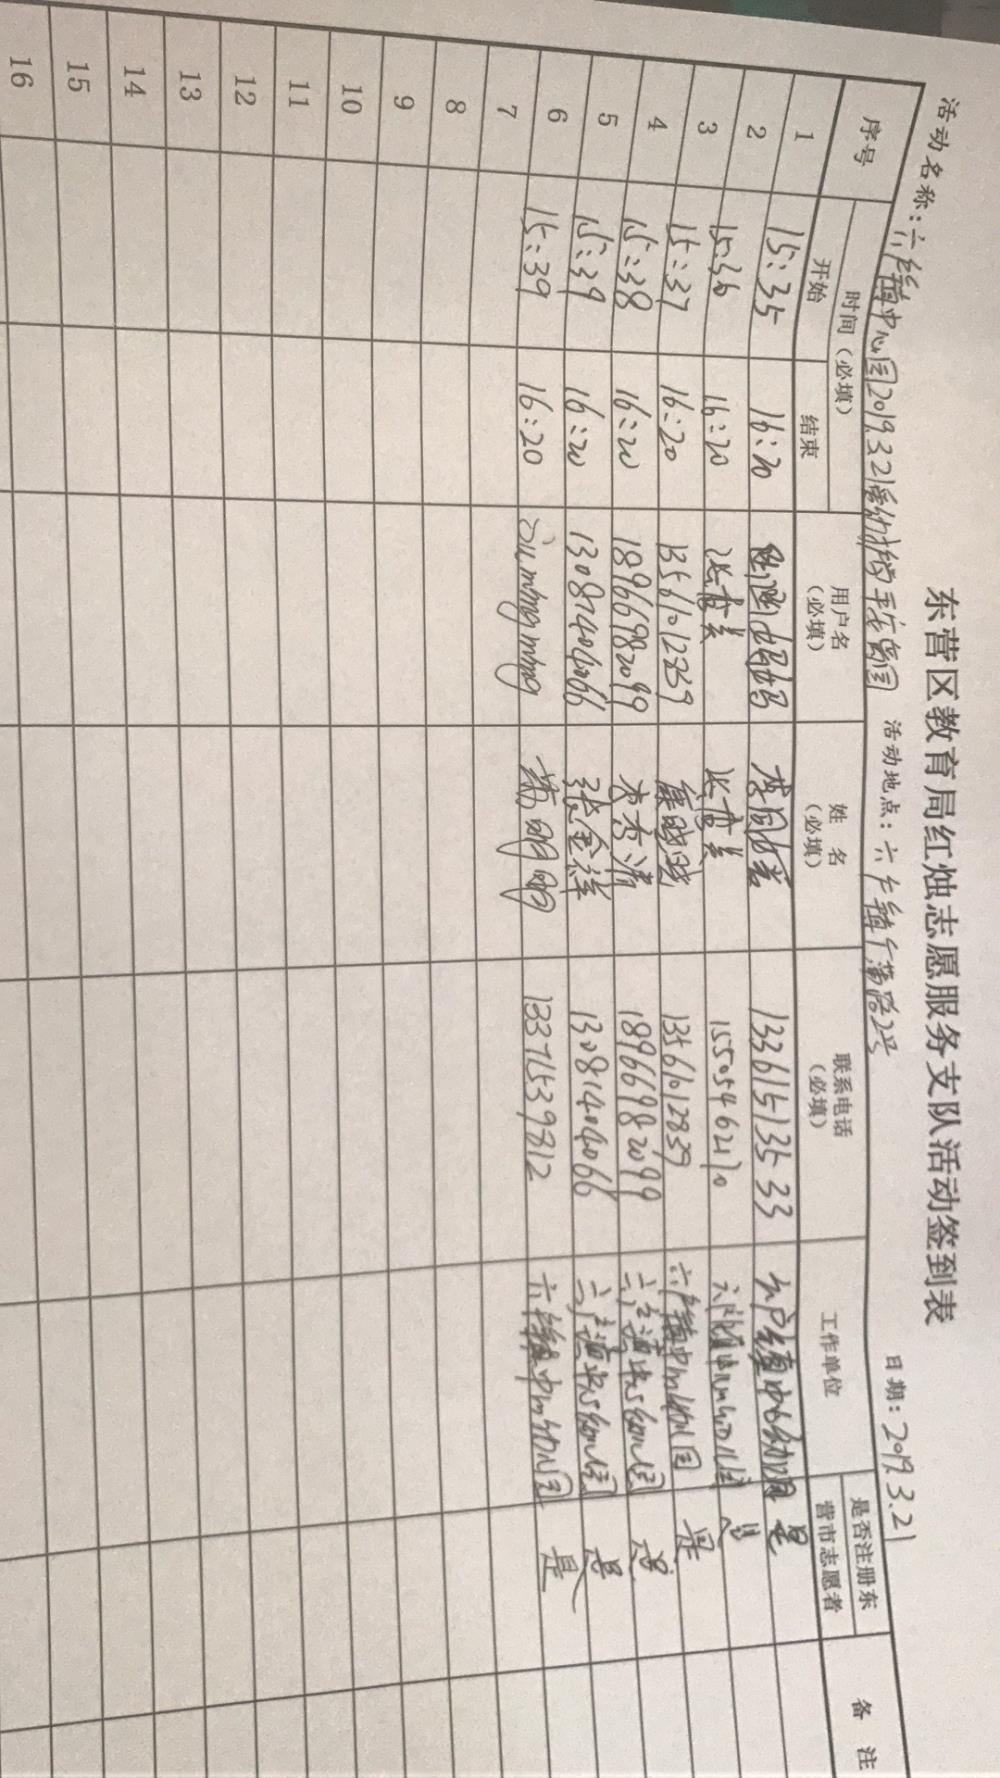 东营区教育局红烛志愿服务支队活动签到表
活动名称：六户镇中心园2019.3.21 活动地点：六户镇 日期：2019.3.21
序号 时间（必填） 用户名（必填） 姓 名（必填） 联系电话（必填） 工作单位 是否注册东营市志愿者 备 注
开始 结束
1 15:35 16:20 13361513533 六户镇中心幼儿园 是
2 15:36 16:20 15505462170 六户镇中心幼儿园 是
3 15:37 16:20 13561012839 13561012839 六户镇中心幼儿园 是
4 15:38 16:20 18966982099 18966982099 六户镇中心幼儿园 是
5 15:39 16:20 13081404066 张金祥 13081404066 六户镇中心幼儿园 是
6 15:39 16:20 明明 13371539812 六户镇中心幼儿园 是
7
8
9
10
11
12
13
14
15
16